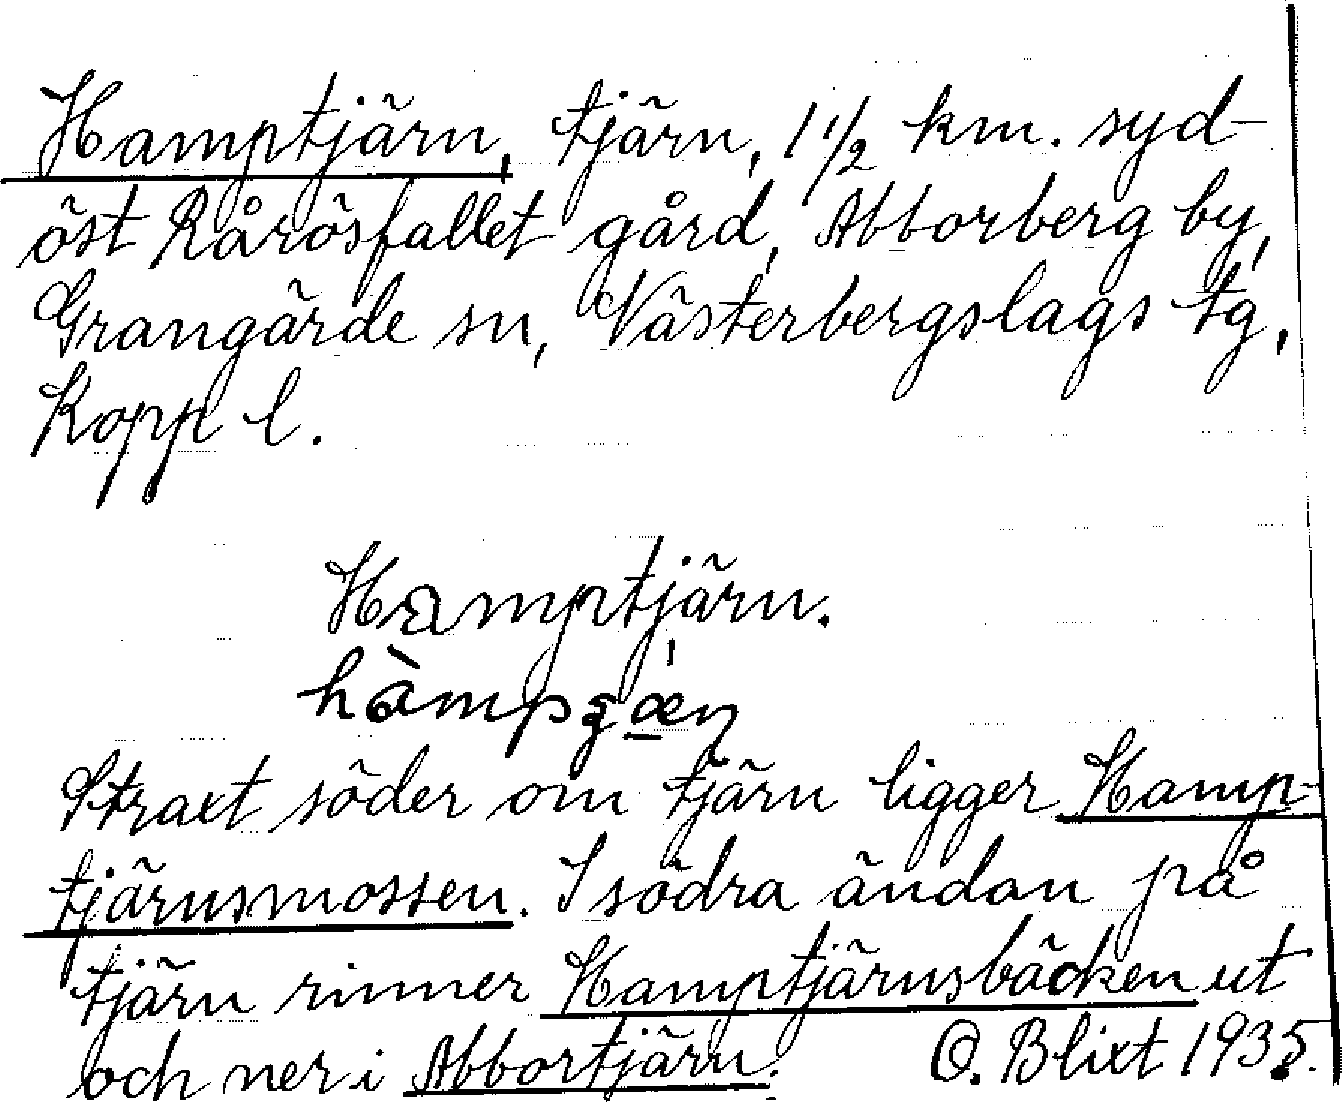 Hamptjärn, tjärn, 1 1/2 km. syd-
öst Rårösfallet gård, Abborberg by,
Grangärde sn, Västerbergslags tg,
Kopp l.
Hamptjärn.
Straxt söder om tjärn ligger Hamp-
tjärnsmossen. I södra ändan på
tjärn rinner Hamptjärnsbäcken ut
och ner i Abbortjärn. O. Blixt 1935.